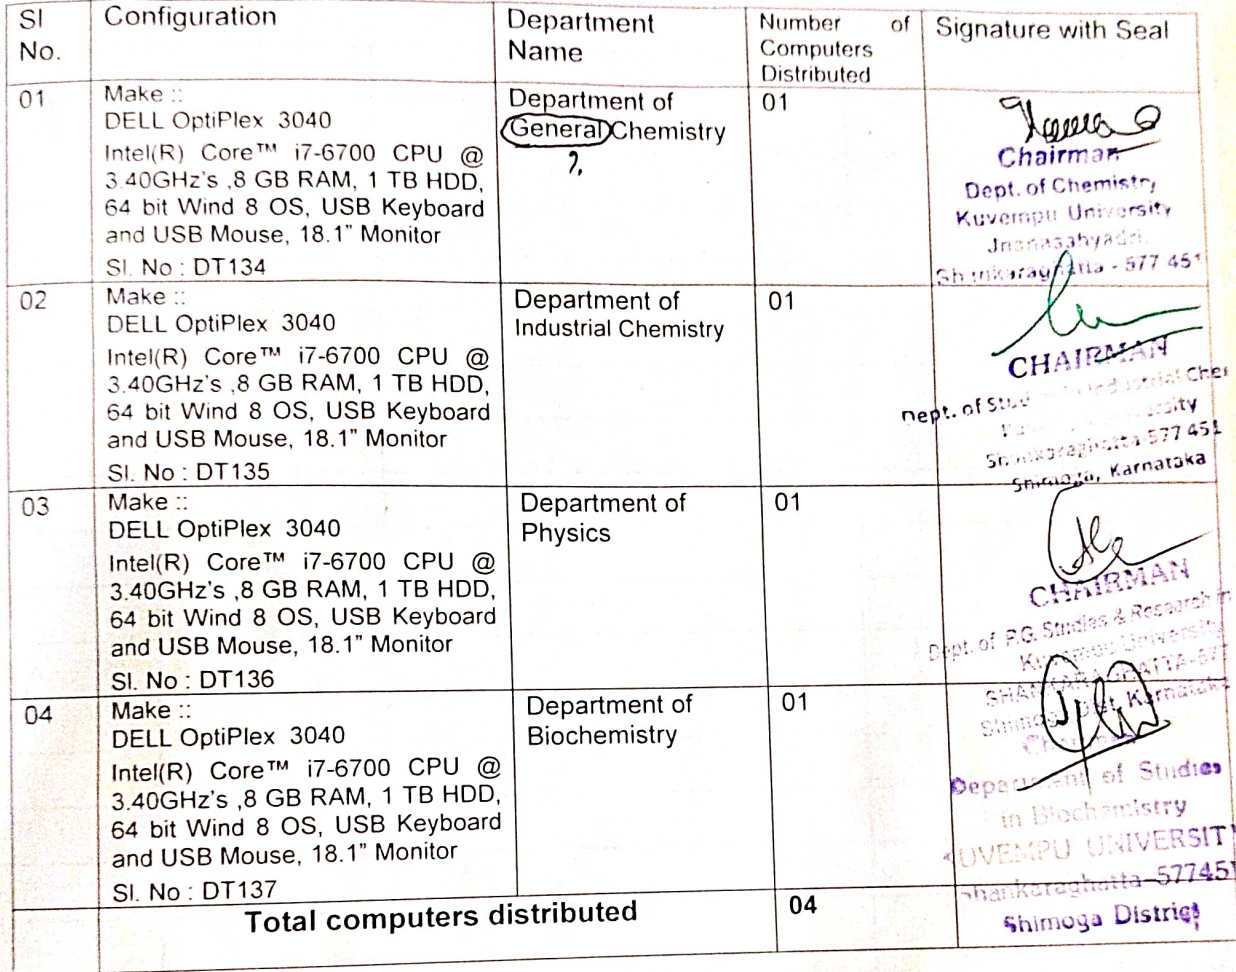 Sl No. Configuration Department Name Number of Computers Distributed Signature with Seal
01
Make ::
DELL OptiPlex 3040
Intel(R) Core™ i7-6700 CPU @
3.40GHz's ,8 GB RAM, 1 TB HDD,
64 bit Wind 8 OS, USB Keyboard
and USB Mouse, 18.1" Monitor
Sl. No : DT134
Department of
General Chemistry
?
01
Chairman
Dept. of Chemistry
Kuvempu University
Jnanasahyadri,
Shankaraghatta - 577 451
02
Make ::
DELL OptiPlex 3040
Intel(R) Core™ i7-6700 CPU @
3.40GHz's ,8 GB RAM, 1 TB HDD,
64 bit Wind 8 OS, USB Keyboard
and USB Mouse, 18.1" Monitor
Sl. No : DT135
Department of
Industrial Chemistry
01
CHAIRMAN
Dept. of Industrial Chem
Shankaraghatta-577 451
Shimoga, Karnataka
03
Make ::
DELL OptiPlex 3040
Intel(R) Core™ i7-6700 CPU @
3.40GHz's ,8 GB RAM, 1 TB HDD,
64 bit Wind 8 OS, USB Keyboard
and USB Mouse, 18.1" Monitor
Sl. No : DT136
Department of
Physics
01
CHAIRMAN
Dept. of P.G. Studies & Research in
Kuvempu University
SHANKARAGHATTA-577
Karnataka
04
Make ::
DELL OptiPlex 3040
Intel(R) Core™ i7-6700 CPU @
3.40GHz's ,8 GB RAM, 1 TB HDD,
64 bit Wind 8 OS, USB Keyboard
and USB Mouse, 18.1" Monitor
Sl. No : DT137
Department of
Biochemistry
01
Chairman
Department of Studies
in Biochemistry
KUVEMPU UNIVERSITY
Shankaraghatta-577451
Shimoga District
Total computers distributed 04